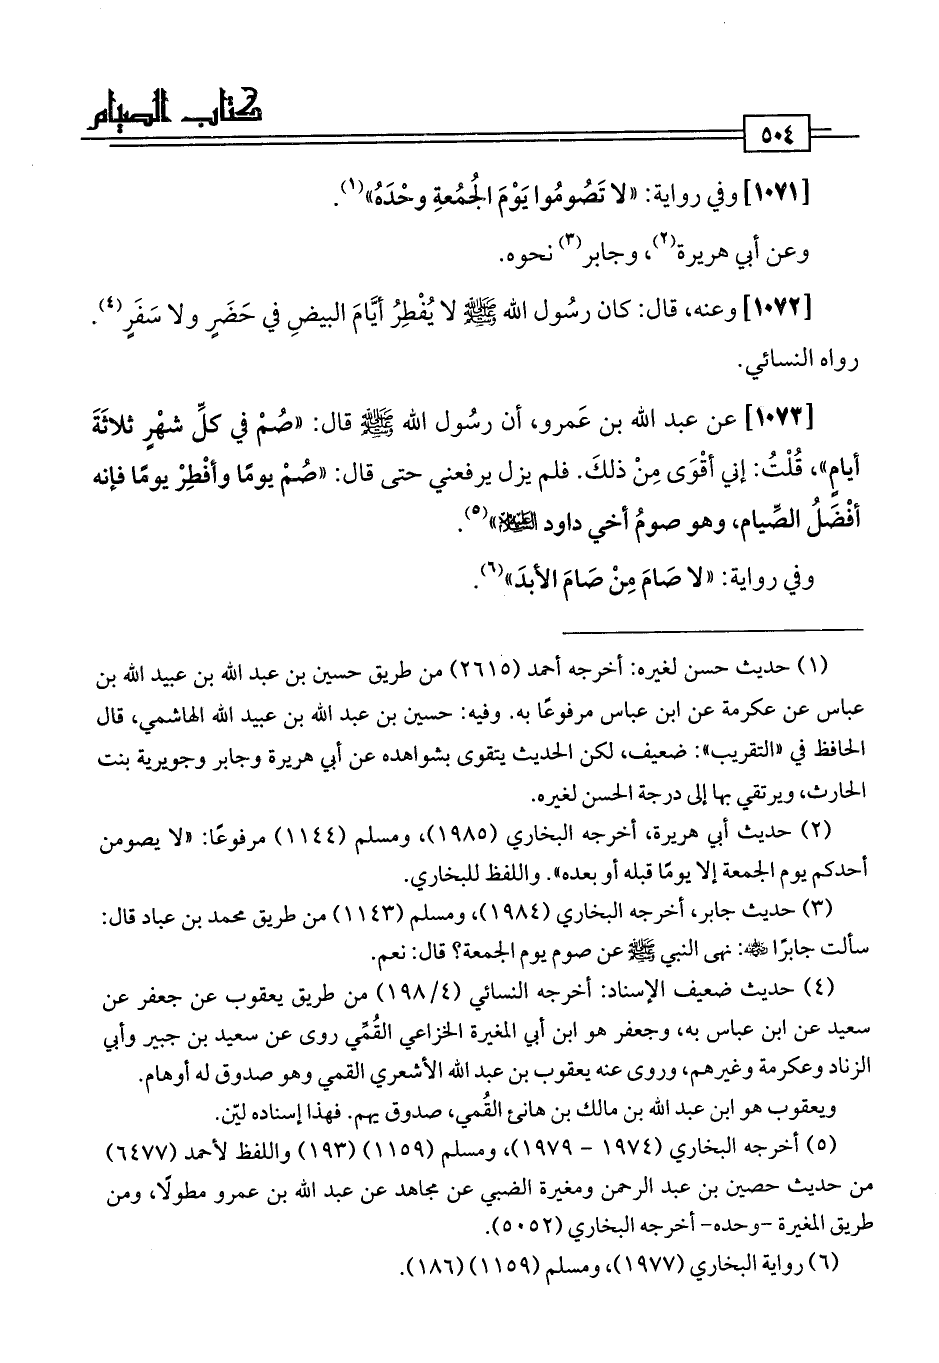 كتاب الصيام
٥٠٤
[١٠٧١] وفي رواية: «لا تَصُومُوا يَوْمَ الجُمُعةِ وحْدَهُ»(١).
وعن أبي هريرة(٢)، وجابر(٣) نحوه.
[١٠٧٢] وعنه، قال: كان رسُول الله ﷺ لا يُفْطِرُ أيَّامَ البيضِ في حَضَرٍ ولا سَفَرٍ(٤).
رواه النسائي.
[١٠٧٣] عن عبد الله بن عَمرو، أن رسُول الله ﷺ قال: «صُمْ في كلِّ شهْرٍ ثلاثَةَ
أيامٍ»، قُلْتُ: إني أقْوَى مِنْ ذلكَ. فلم يزل يرفعني حتى قال: «صُمْ يومًا وأفْطِرْ يومًا فإنه
أفْضَلُ الصِّيام، وهو صومُ أخي داود ﵇»(٥).
وفي رواية: «لا صَامَ مِنْ صَامَ الأبدَ»(٦).
(١) حديث حسن لغيره: أخرجه أحمد (٢٦١٥) من طريق حسين بن عبد الله بن عبيد الله بن
عباس عن عكرمة عن ابن عباس مرفوعًا به. وفيه: حسين بن عبد الله بن عبيد الله الهاشمي، قال
الحافظ في «التقريب»: ضعيف، لكن الحديث يتقوى بشواهده عن أبي هريرة وجابر وجويرية بنت
الحارث، ويرتقي بها إلى درجة الحسن لغيره.
(٢) حديث أبي هريرة، أخرجه البخاري (١٩٨٥)، ومسلم (١١٤٤) مرفوعًا: «لا يصومن
أحدكم يوم الجمعة إلا يومًا قبله أو بعده». واللفظ للبخاري.
(٣) حديث جابر، أخرجه البخاري (١٩٨٤)، ومسلم (١١٤٣) من طريق محمد بن عباد قال:
سألت جابرًا ﵁: نهى النبي ﷺ عن صوم يوم الجمعة؟ قال: نعم.
(٤) حديث ضعيف الإسناد: أخرجه النسائي (٤/١٩٨) من طريق يعقوب عن جعفر عن
سعيد عن ابن عباس به، وجعفر هو ابن أبي المغيرة الخزاعي القُمِّي روى عن سعيد بن جبير وأبي
الزناد وعكرمة وغيرهم، وروى عنه يعقوب بن عبد الله الأشعري القمي وهو صدوق له أوهام.
ويعقوب هو ابن عبد الله بن مالك بن هانئ القُمي، صدوق يهم. فهذا إسناده ليّن.
(٥) أخرجه البخاري (١٩٧٤ - ١٩٧٩)، ومسلم (١١٥٩) (١٩٣) واللفظ لأحمد (٦٤٧٧)
من حديث حصين بن عبد الرحمن ومغيرة الضبي عن مجاهد عن عبد الله بن عمرو مطولًا، ومن
طريق المغيرة -وحده- أخرجه البخاري (٥٠٥٢).
(٦) رواية البخاري (١٩٧٧)، ومسلم (١١٥٩) (١٨٦).